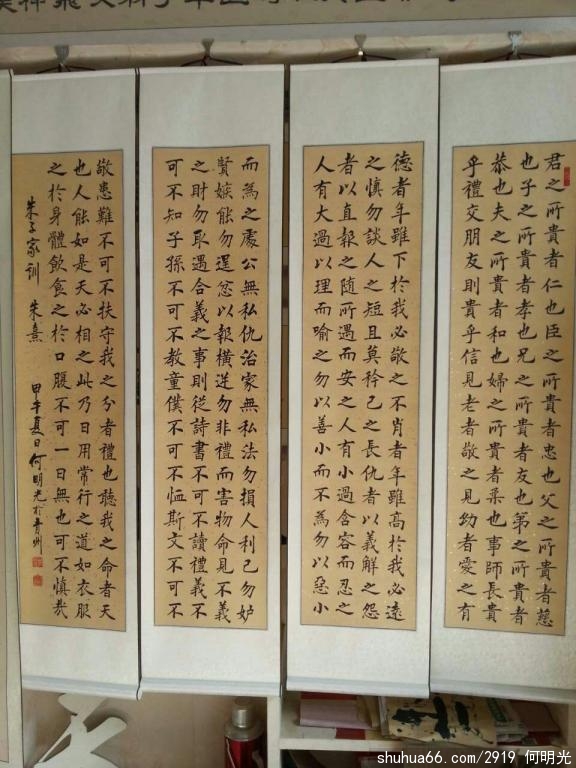 君之所貴者仁也臣之所貴者忠也父之所貴者慈
也子之所貴者孝也兄之所貴者友也弟之所貴者
恭也夫之所貴者和也婦之所貴者柔也事師長貴
乎禮交朋友則貴乎信見老者敬之見幼者愛之有
德者年雖下於我必敬之不肖者年雖高於我必遠
之慎勿談人之短且莫矜己之長仇者以義解之怨
者以直報之随所遇而安之人有小過含容而忍之
人有大過以理而喻之勿以善小而不為勿以惡小
而為之處公無私仇治家無私法勿損人利己勿妒
賢嫉能勿逞忿以報横逆勿非禮而害物命見不義
之財勿取遇合義之事則從詩書不可不讀禮義不
可不知子孫不可不教童僕不可不恤斯文不可不
敬患難不可不扶守我之分者禮也聽我之命者天
也人能如是天必相之此乃日用常行之道如衣服
之於身體飲食之於口腹不可一日無也可不慎哉
朱子家訓 朱熹
甲午夏日何明光於青州
shuhua66.com/2919 何明光